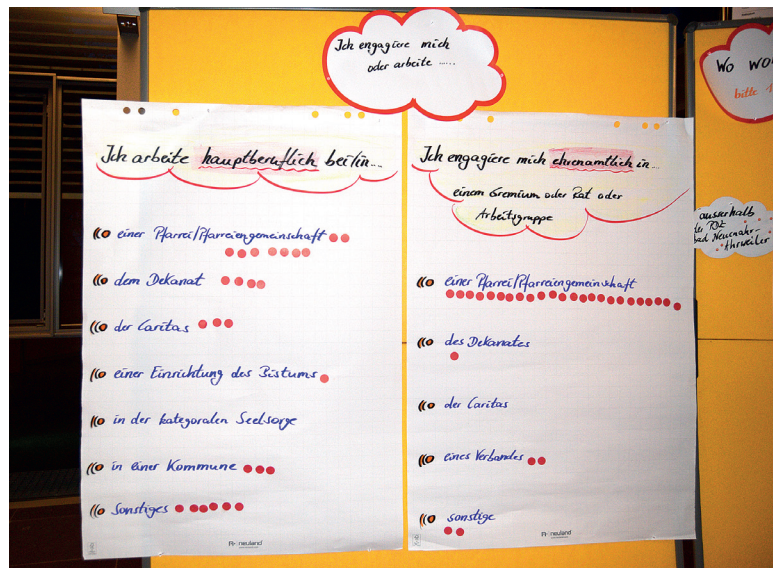 Ich engagiere mich
oder arbeite .....
Ich arbeite hauptberuflich bei/in...
einer Pfarrei/Pfarreiengemeinschaft
dem Dekanat
der Caritas
einer Einrichtung des Bistums
in der kategoralen Seelsorge
in einer Kommune
Sonstiges
neuland
Ich engagiere mich ehrenamtlich in...
einem Gremium oder Rat oder
Arbeitsgruppe
einer Pfarrei/Pfarreiengemeinschaft
des Dekanates
der Caritas
eines Verbandes
sonstige
neuland
Wo
bitte
ausserhalb
bad Neuenahr-
Ahrweiler